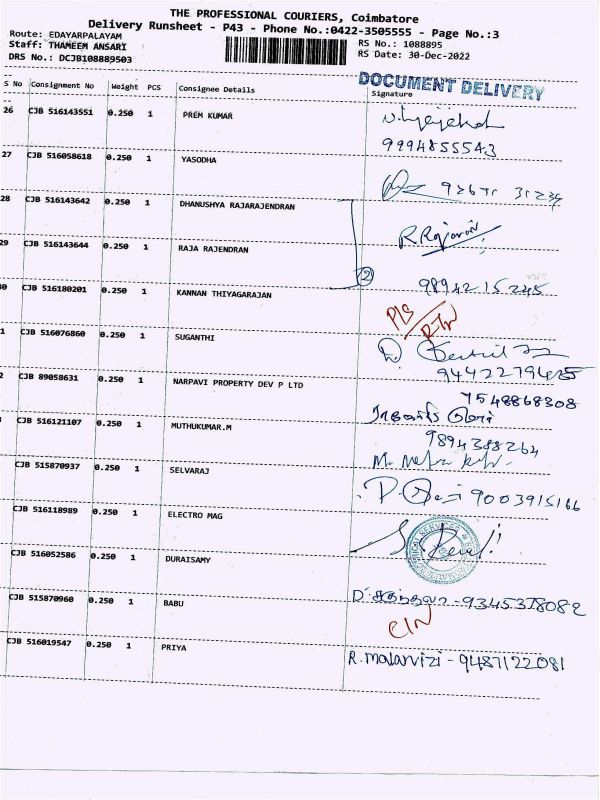 THE PROFESSIONAL COURIERS, Coimbatore
Delivery Runsheet - P43 - Phone No.:0422-3505555 - Page No.:3
Route: EDAYARPALAYAM
Staff: THAMEEM ANSARI
DRS No.: DCJB108889503
RS No.: 1088895
RS Date: 30-Dec-2022
DOCUMENT DELIVERY
S No Consignment No Weight PCS Consignee Details Signature
26 CJB 516143551 0.250 1 PREM KUMAR
9994855543
27 CJB 516058618 0.250 1 YASODHA
28 CJB 516143642 0.250 1 DHANUSHYA RAJARAJENDRAN
29 CJB 516143644 0.250 1 RAJA RAJENDRAN
2
98942 15245
0 CJB 516180201 0.250 1 KANNAN THIYAGARAJAN
1 CJB 516076860 0.250 1 SUGANTHI
2 CJB 89058631 0.250 1 NARPAVI PROPERTY DEV P LTD
7548868308
CJB 516121107 0.250 1 MUTHUKUMAR.M
9894388264
CJB 515870937 0.250 1 SELVARAJ
9003915166
CJB 516118989 0.250 1 ELECTRO MAG
CJB 516052586 0.250 1 DURAISAMY
CJB 515870960 0.250 1 BABU
CJB 516019547 0.250 1 PRIYA
R.Malarvizi - 9487122081